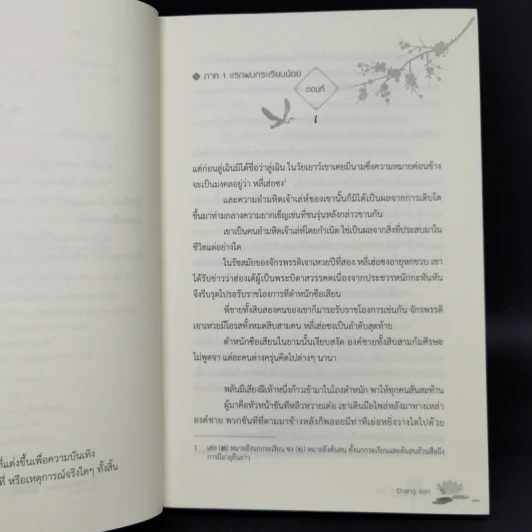 ภาค 1 แรกพบกระเรียนน้อย
ตอนที่
1
แต่ก่อนลู่เฉินมิได้ชื่อว่าลู่เฉิน ในวัยเยาว์เขาเคยมีนามซึ่งความหมายค่อนข้าง
จะเป็นมงคลอยู่ว่า หลี่เฮ่อซง¹
และความอำมหิตเจ้าเล่ห์ของเขานั้นก็มิได้เป็นผลจากการเติบโต
ขึ้นมาท่ามกลางความยากเข็ญเช่นที่ชนรุ่นหลังกล่าวขานกัน
เขาเป็นคนอำมหิตเจ้าเล่ห์โดยกำเนิด ใช่เป็นผลจากสิ่งที่ประสบมาใน
ชีวิตแต่อย่างใด
ในรัชสมัยของจักรพรรดิเจาเหวยปีที่สอง หลี่เฮ่อซงอายุหกขวบ เขา
ได้รับข่าวว่าฮ่องเต้ผู้เป็นพระบิดาสวรรคตเนื่องจากประชวรหนักกะทันหัน
จึงรีบรุดไปรอรับราชโองการที่ตำหนักซือเสียน
พี่ชายทั้งสิบสองคนของเขาก็มารอรับราชโองการเช่นกัน จักรพรรดิ
เจาเหวยมีโอรสทั้งหมดสิบสามคน หลี่เฮ่อซงเป็นลำดับสุดท้าย
ตำหนักซือเสียนในยามนั้นเงียบสงัด องค์ชายทั้งสิบสามก้มศีรษะ
ไม่พูดจา แต่ละคนต่างครุ่นคิดไปต่างๆ นานา
พลันมีเสียงฝีเท้าหนึ่งก้าวเข้ามาในโถงตำหนัก พาให้ทุกคนสั่นสะท้าน
ผู้มาคือหัวหน้าขันทีหลิวหวายเต๋อ เขาเดินมือไพล่หลังมาทางเหล่า
องค์ชาย พวกขันทีที่ตามมาข้างหลังก็พลอยมีท่าทีเย่อหยิ่งวางโตไปด้วย
1 เฮ่อ (鹤) หมายถึงนกกระเรียน ซง (松) หมายถึงต้นสน ทั้งนกกระเรียนและต้นสนล้วนสื่อถึง
การมีอายุยืนยาว
5
ที่แต่งขึ้นเพื่อความบันเทิง
ที่ หรือเหตุการณ์จริงใดๆ ทั้งสิ้น